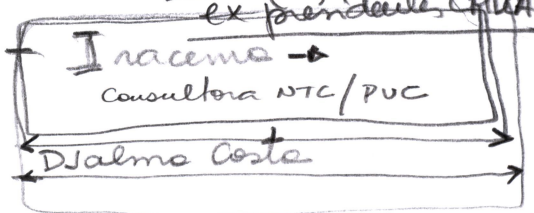 ex presidentes
Iracema →
Consultora NTC/PUC
Djalma Costa